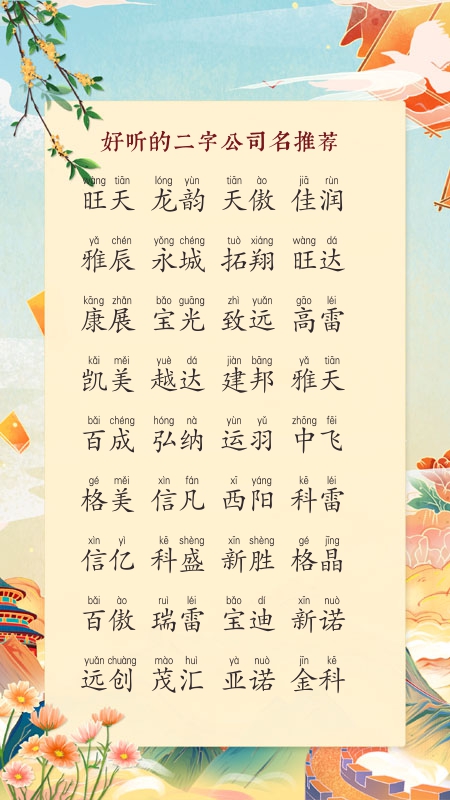 好听的二字公司名推荐
wàng tiān lóng yùn tiān ào jiā rùn
旺天 龙韵 天傲 佳润
yǎ chén yǒng chéng tuò xiáng wàng dá
雅辰 永城 拓翔 旺达
kāng zhǎn bǎo guāng zhì yuǎn gāo léi
康展 宝光 致远 高雷
kǎi měi yuè dá jiàn bāng yǎ tiān
凯美 越达 建邦 雅天
bǎi chéng hóng nà yùn yǔ zhōng fēi
百成 弘纳 运羽 中飞
gé měi xìn fán xī yáng kē léi
格美 信凡 西阳 科雷
xìn yì kē shèng xīn shèng gé jīng
信亿 科盛 新胜 格晶
bǎi ào ruì léi bǎo dí xīn nuò
百傲 瑞雷 宝迪 新诺
yuǎn chuàng mào huì yà nuò jīn kē
远创 茂汇 亚诺 金科